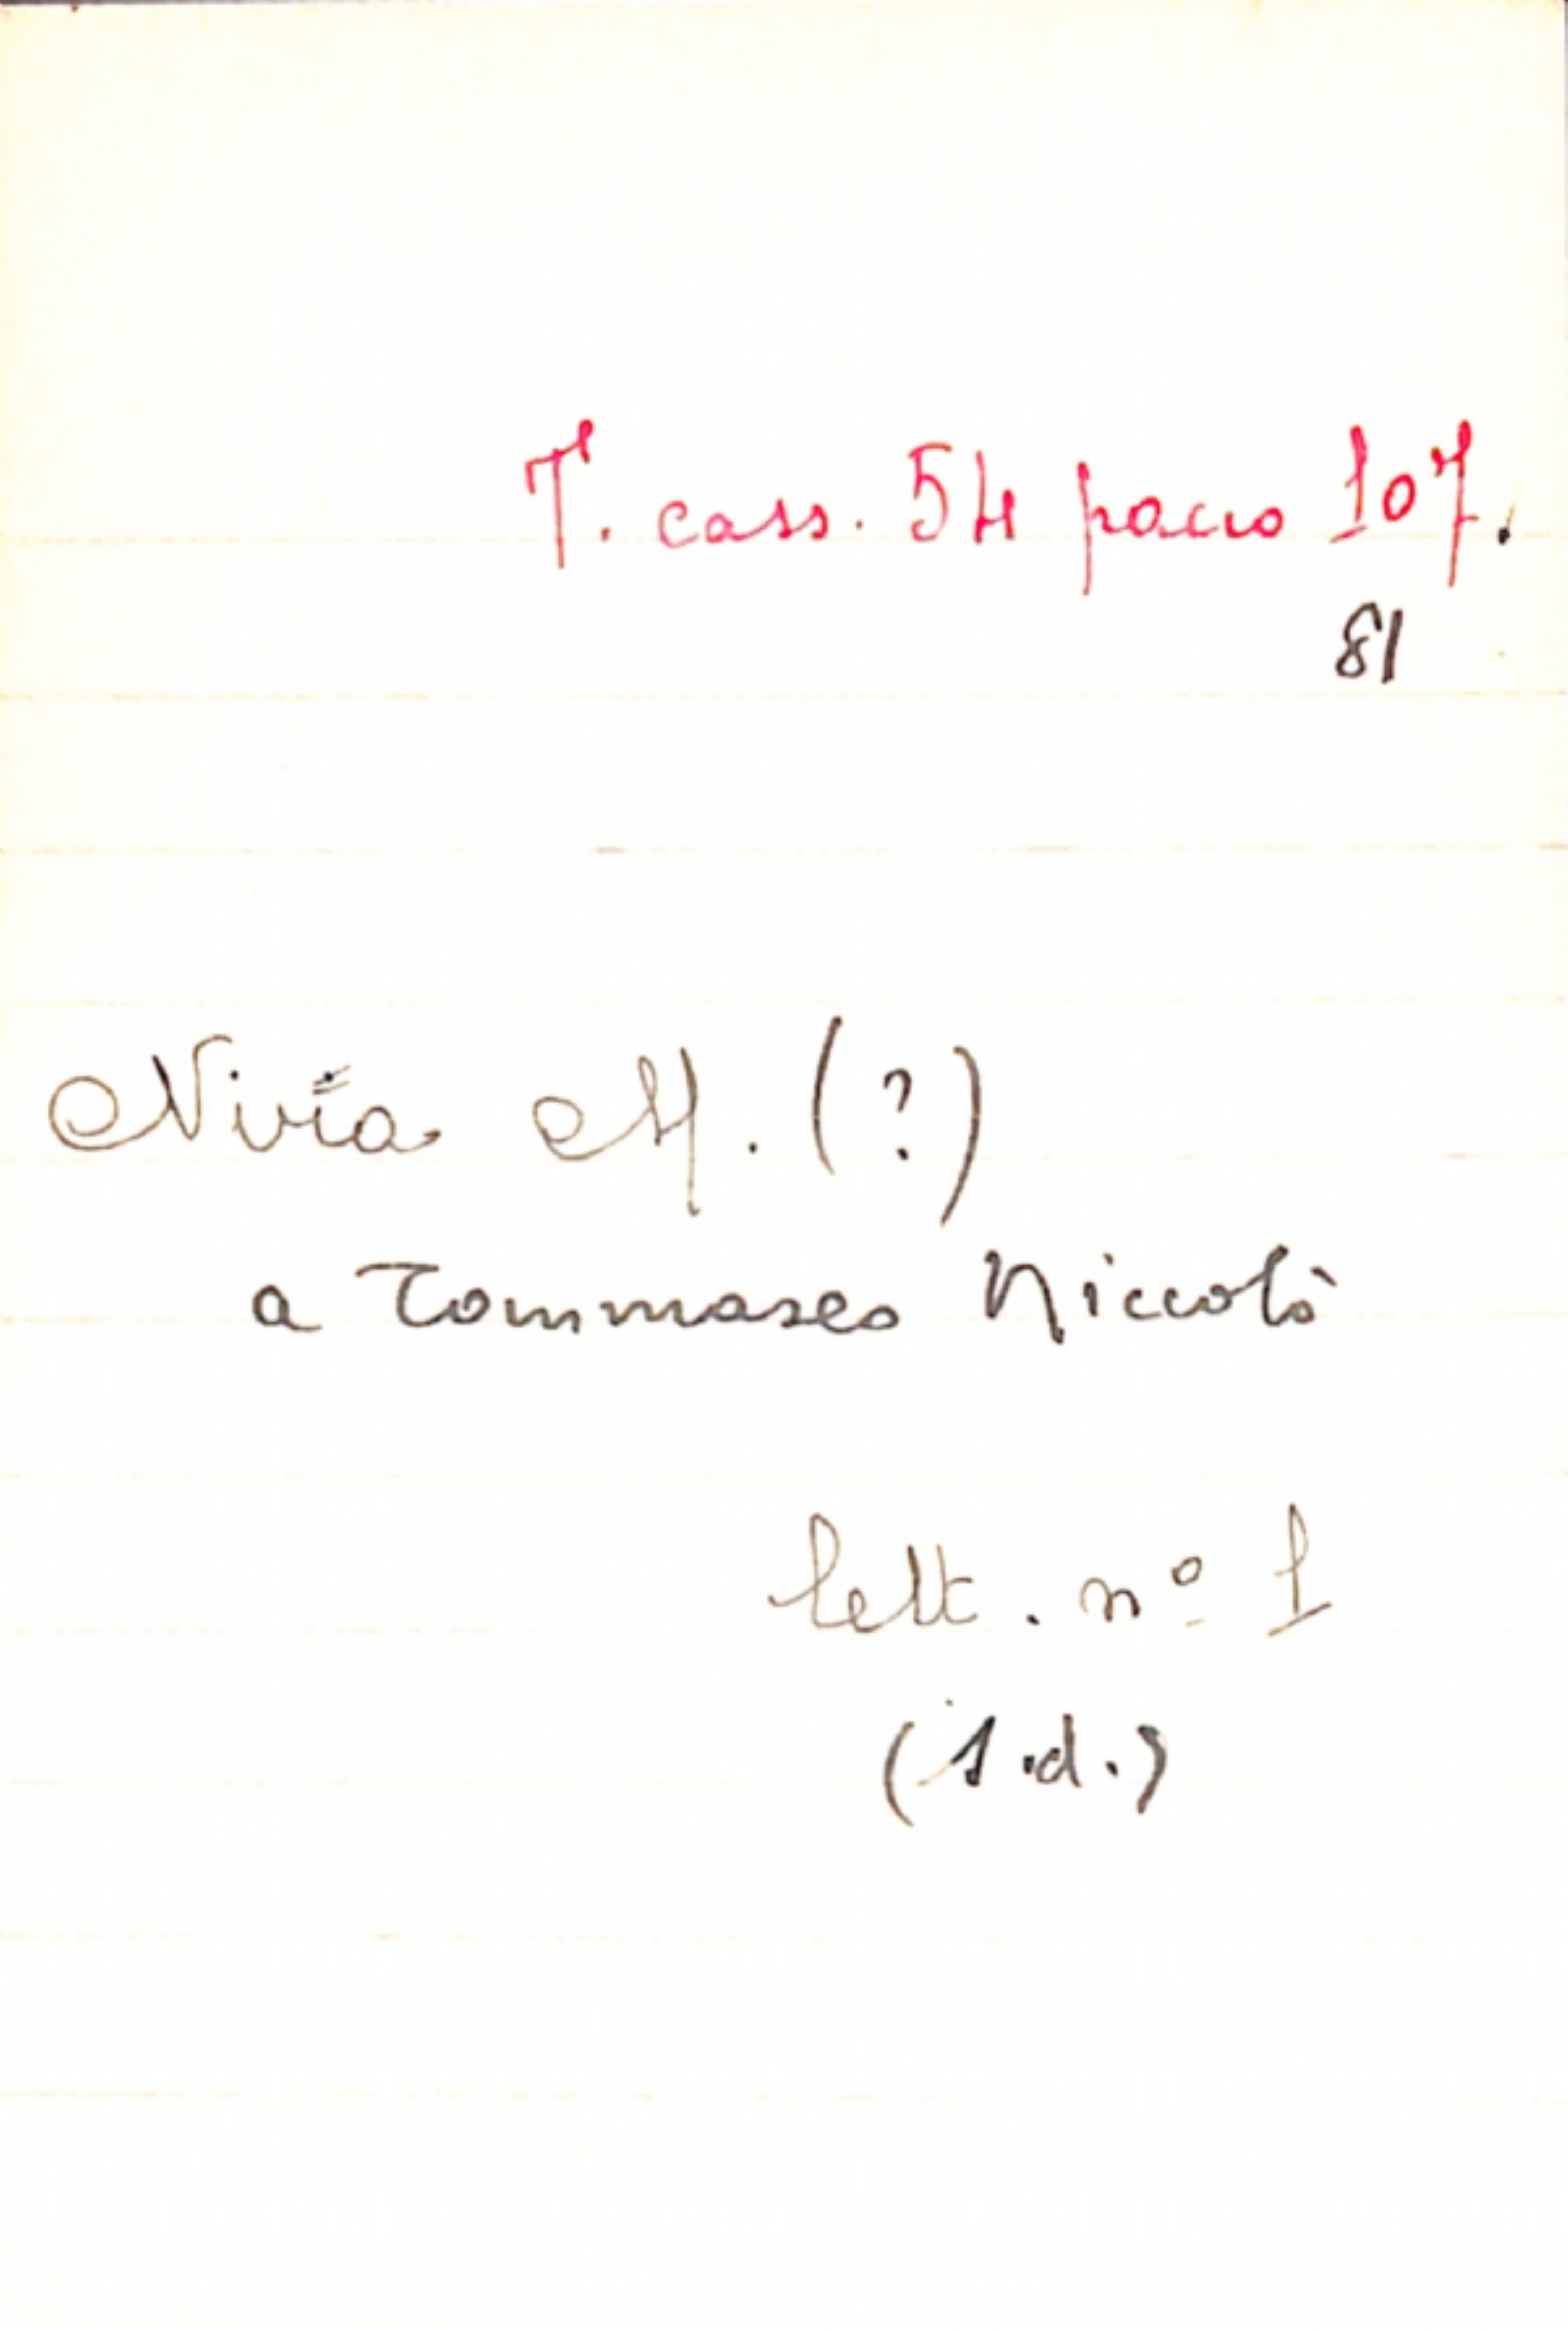 T. cass. 54 pacco 107.
81
Nivia M. (?)
a Tommaseo Niccolò
lett. nº 1
(s.d.)